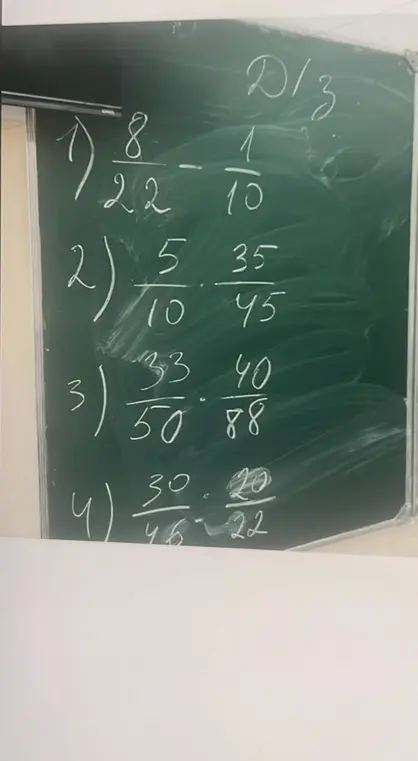 Д/з
1) 8/22 - 1/10
2) 5/10 · 35/45
3) 33/50 · 40/88
4) 30/45 · 20/22